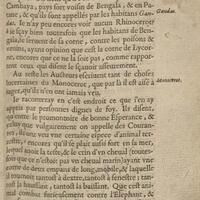 Cambaya, pays fort voisin de Bengala, & en Pa-
tane, & qu'ils sont appellés par les habitans Gan-
das. Ie n'ay peu encores voir aucun Rhinocerot
Gandas.
& ie sçay bien toutesfois que les habitans de Ben-
gala, se servent de sa corne, contre les poisons, e-
stimans, ayans opinion que c'est la corne de Lycor-
ne, encores que ce ne la soit pas, comme rappor-
tent ceux, qui disent le sçavoir asseurement.
Au reste les Autheurs escrivent tant de choses
incertaines du Monoceros, que par là il est aisé à
Monoceros.
juger, qu'ils n'en ont jamais veu.
Ie raconteray en c'est endroit ce que i'en ay
appris par personnes dignes de foy. Ils disent,
qu'entre le promontoire de bonne Esperance, &
celuy que vulgairement on appelle des Couran-
tes, ils ont veu une certaine espece d'animal ter-
restre, encores qu'il se plaise aussi fort en la mer,
lequel avoit la teste, & le crin d'un cheval (toutes-
fois que ce n'estoit pas un cheval marin) ayant une
corne de deux empans de long, mobile, & laquelle
il tournoit tantost à dextre, tantost à senestre, tan-
tost la haussant, tantost la baissant. Que cest ani-
mal combat furieusement contre l'Elephant, &